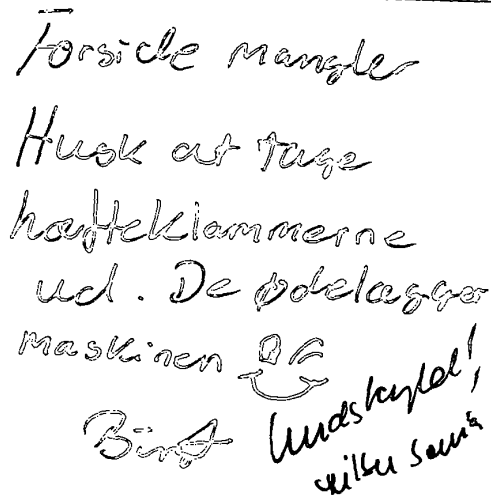 Forside mangler
Husk at tage
hæfteklammerne
ud. De ødelægger
maskinen
Birit
Undskyld!
hilsen Sonia